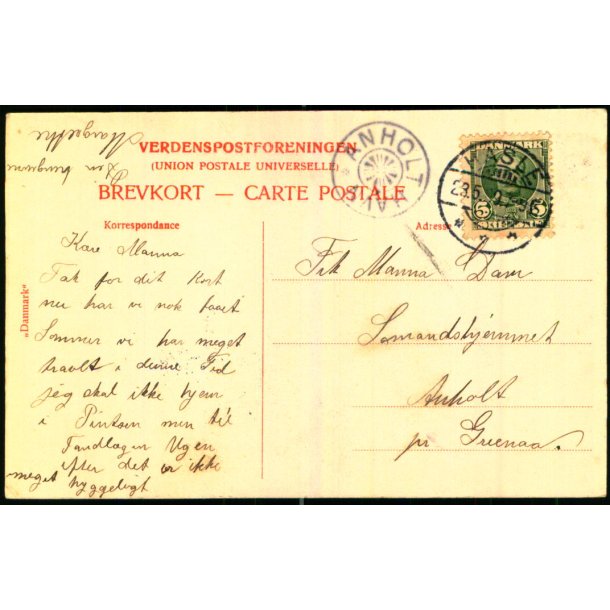 VERDENSPOSTFORENINGEN
(UNION POSTALE UNIVERSELLE)
BREVKORT — CARTE POSTALE
Korrespondance
Kære Manna
Tak for dit Kort
nu har vi nok faaet
Sommer vi har meget
travlt i denne Tid
jeg skal ikke hjem
i Pintsen men til
Tandlægen Ugen
efter det er ikke
meget hyggeligt
Margrethe
„Danmark“
Adresse
Frk Manna Dam
Sømandshjemmet
Anholt
pr Grenaa.
ANHOLT
DANMARK
5 5
HASLE